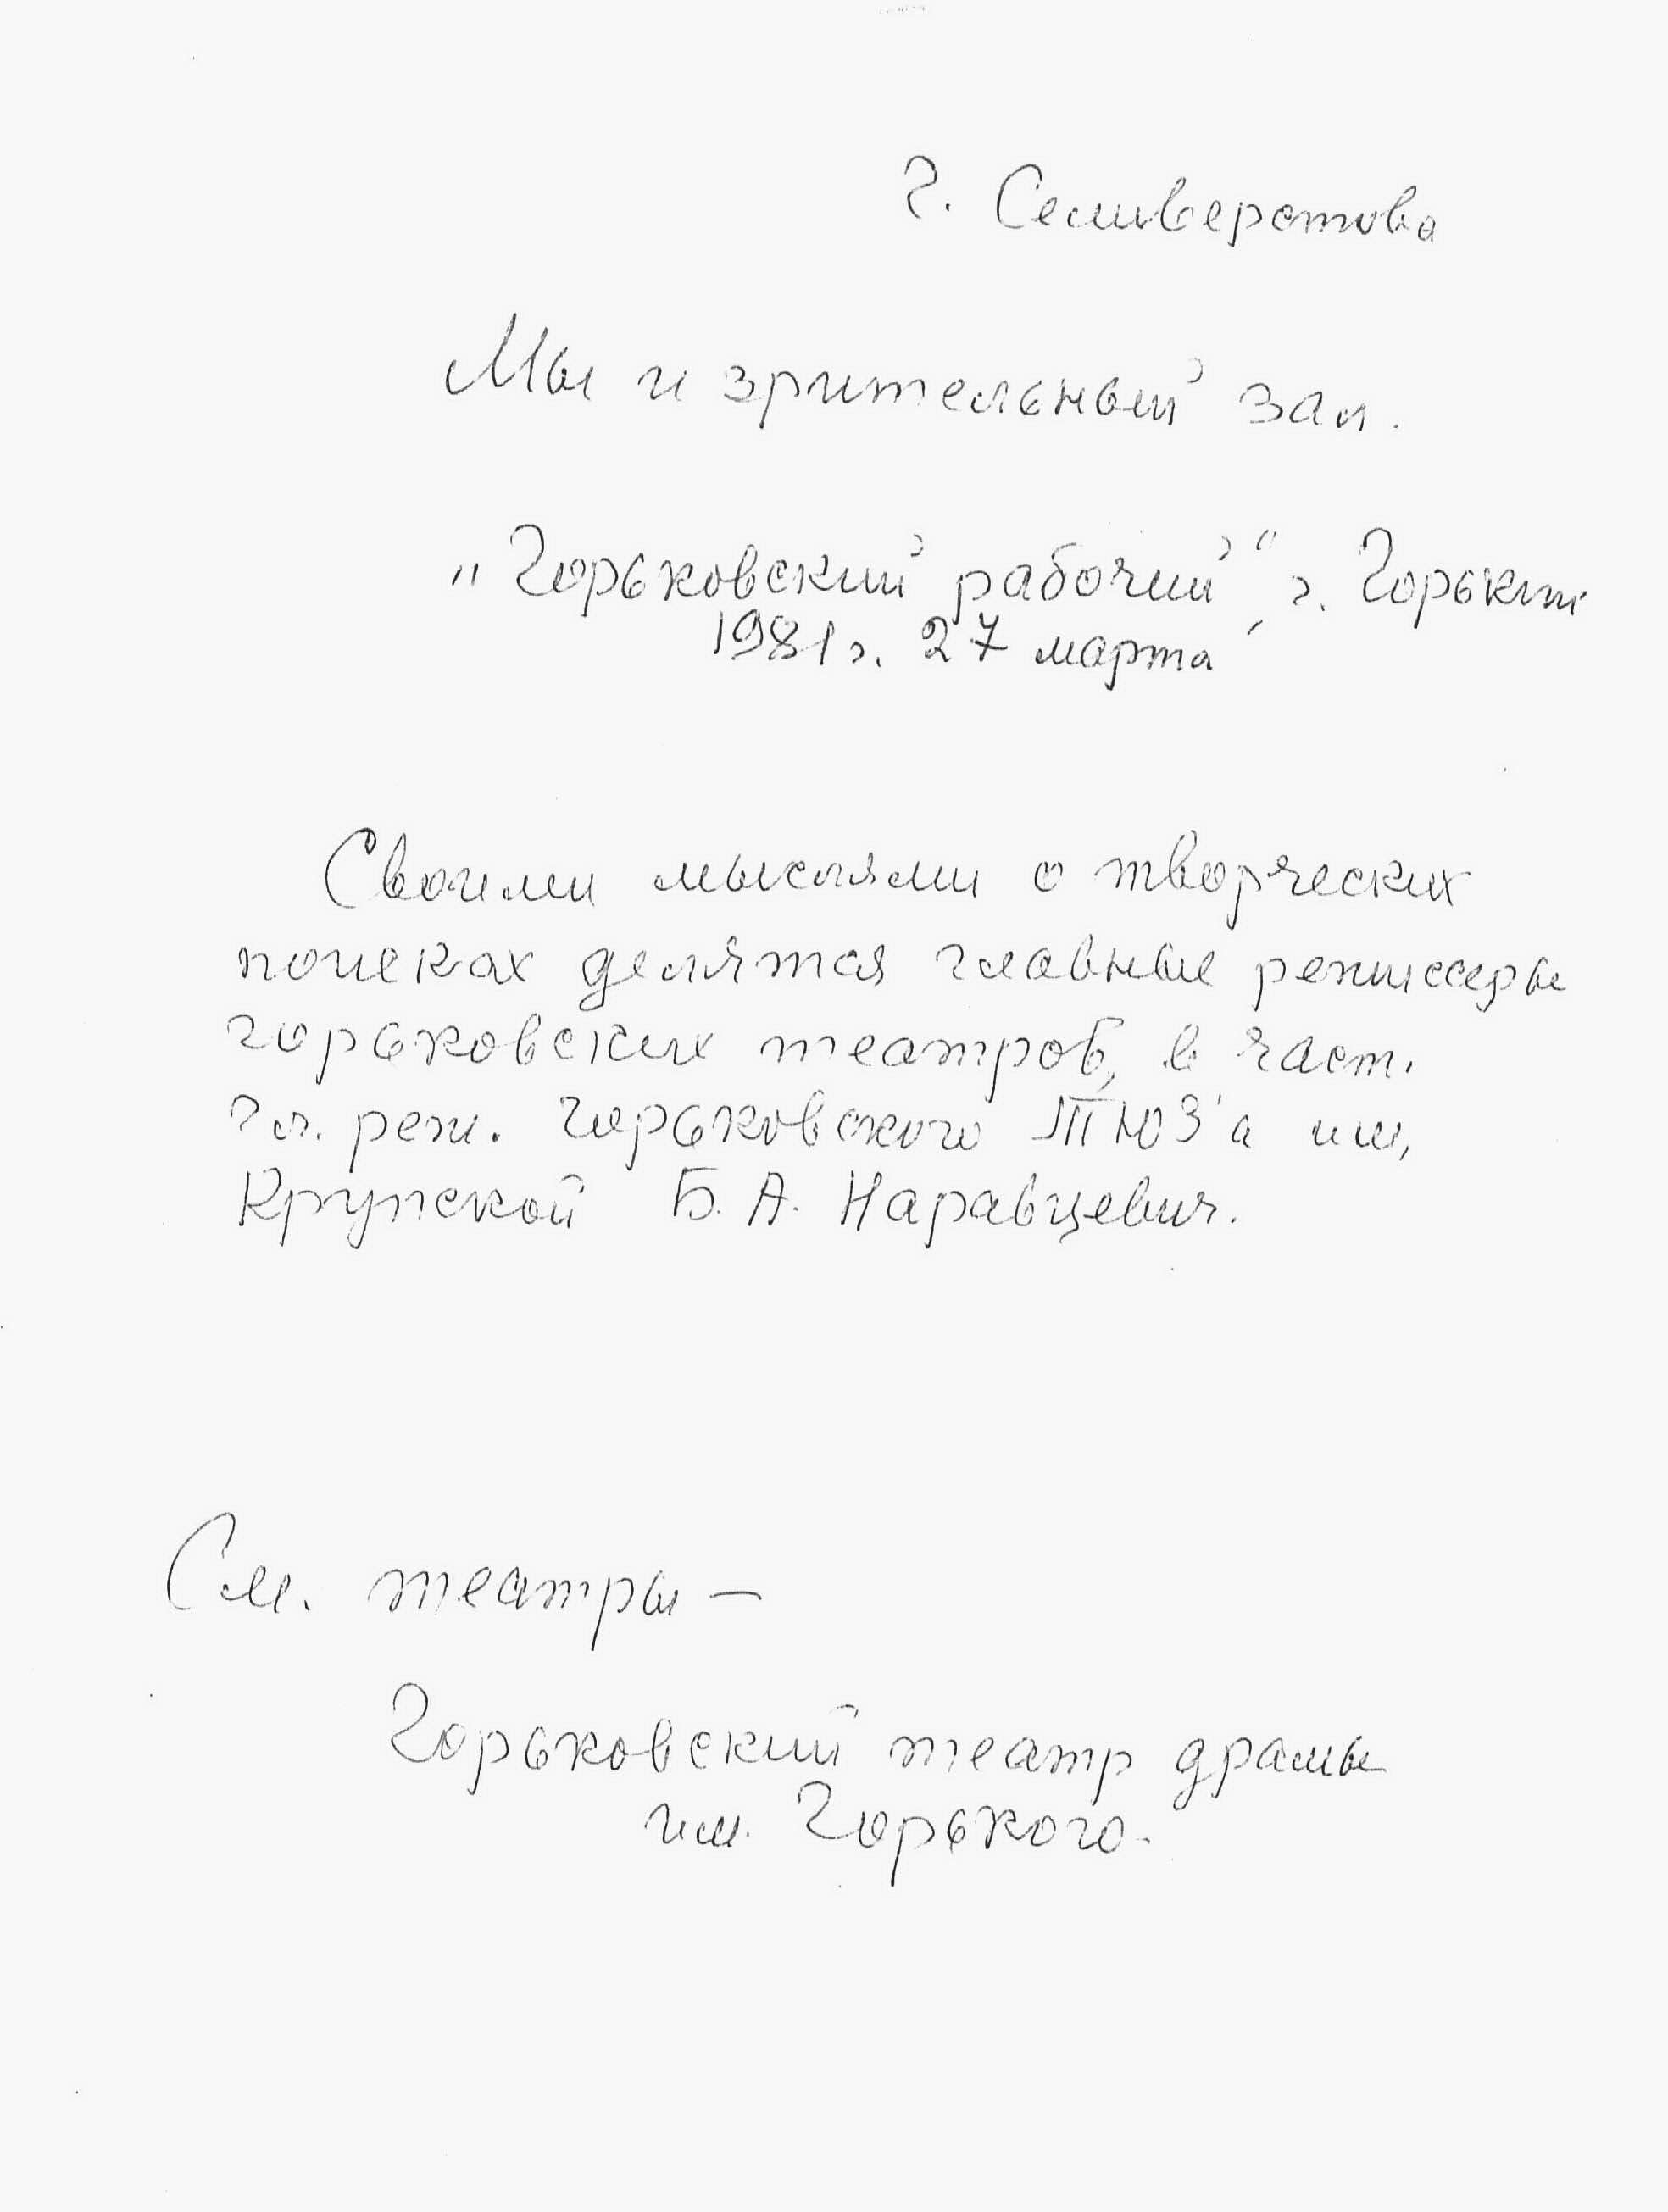 Г. Селиверстова
Мы и зрительный зал.
„Горьковский рабочий“, г. Горький
1981 г. 27 марта
Своими мыслями о творческих
поисках делятся главные режиссеры
горьковских театров, в част.
Гл. реж. Горьковского ТЮЗ'а им.
Крупской Б. А. Наравцевич.
См. театры —
Горьковский театр драмы
им. Горького.